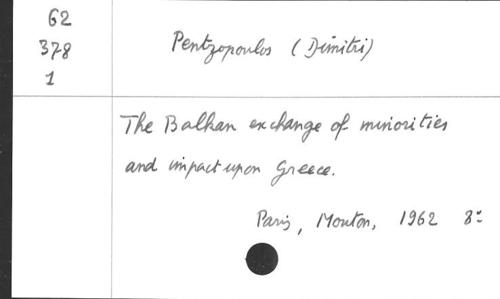 62
378
1
Pentzopoulos (Dimitri)
The Balkan exchange of minorities
and impact upon Greece.
Paris, Mouton, 1962 8°